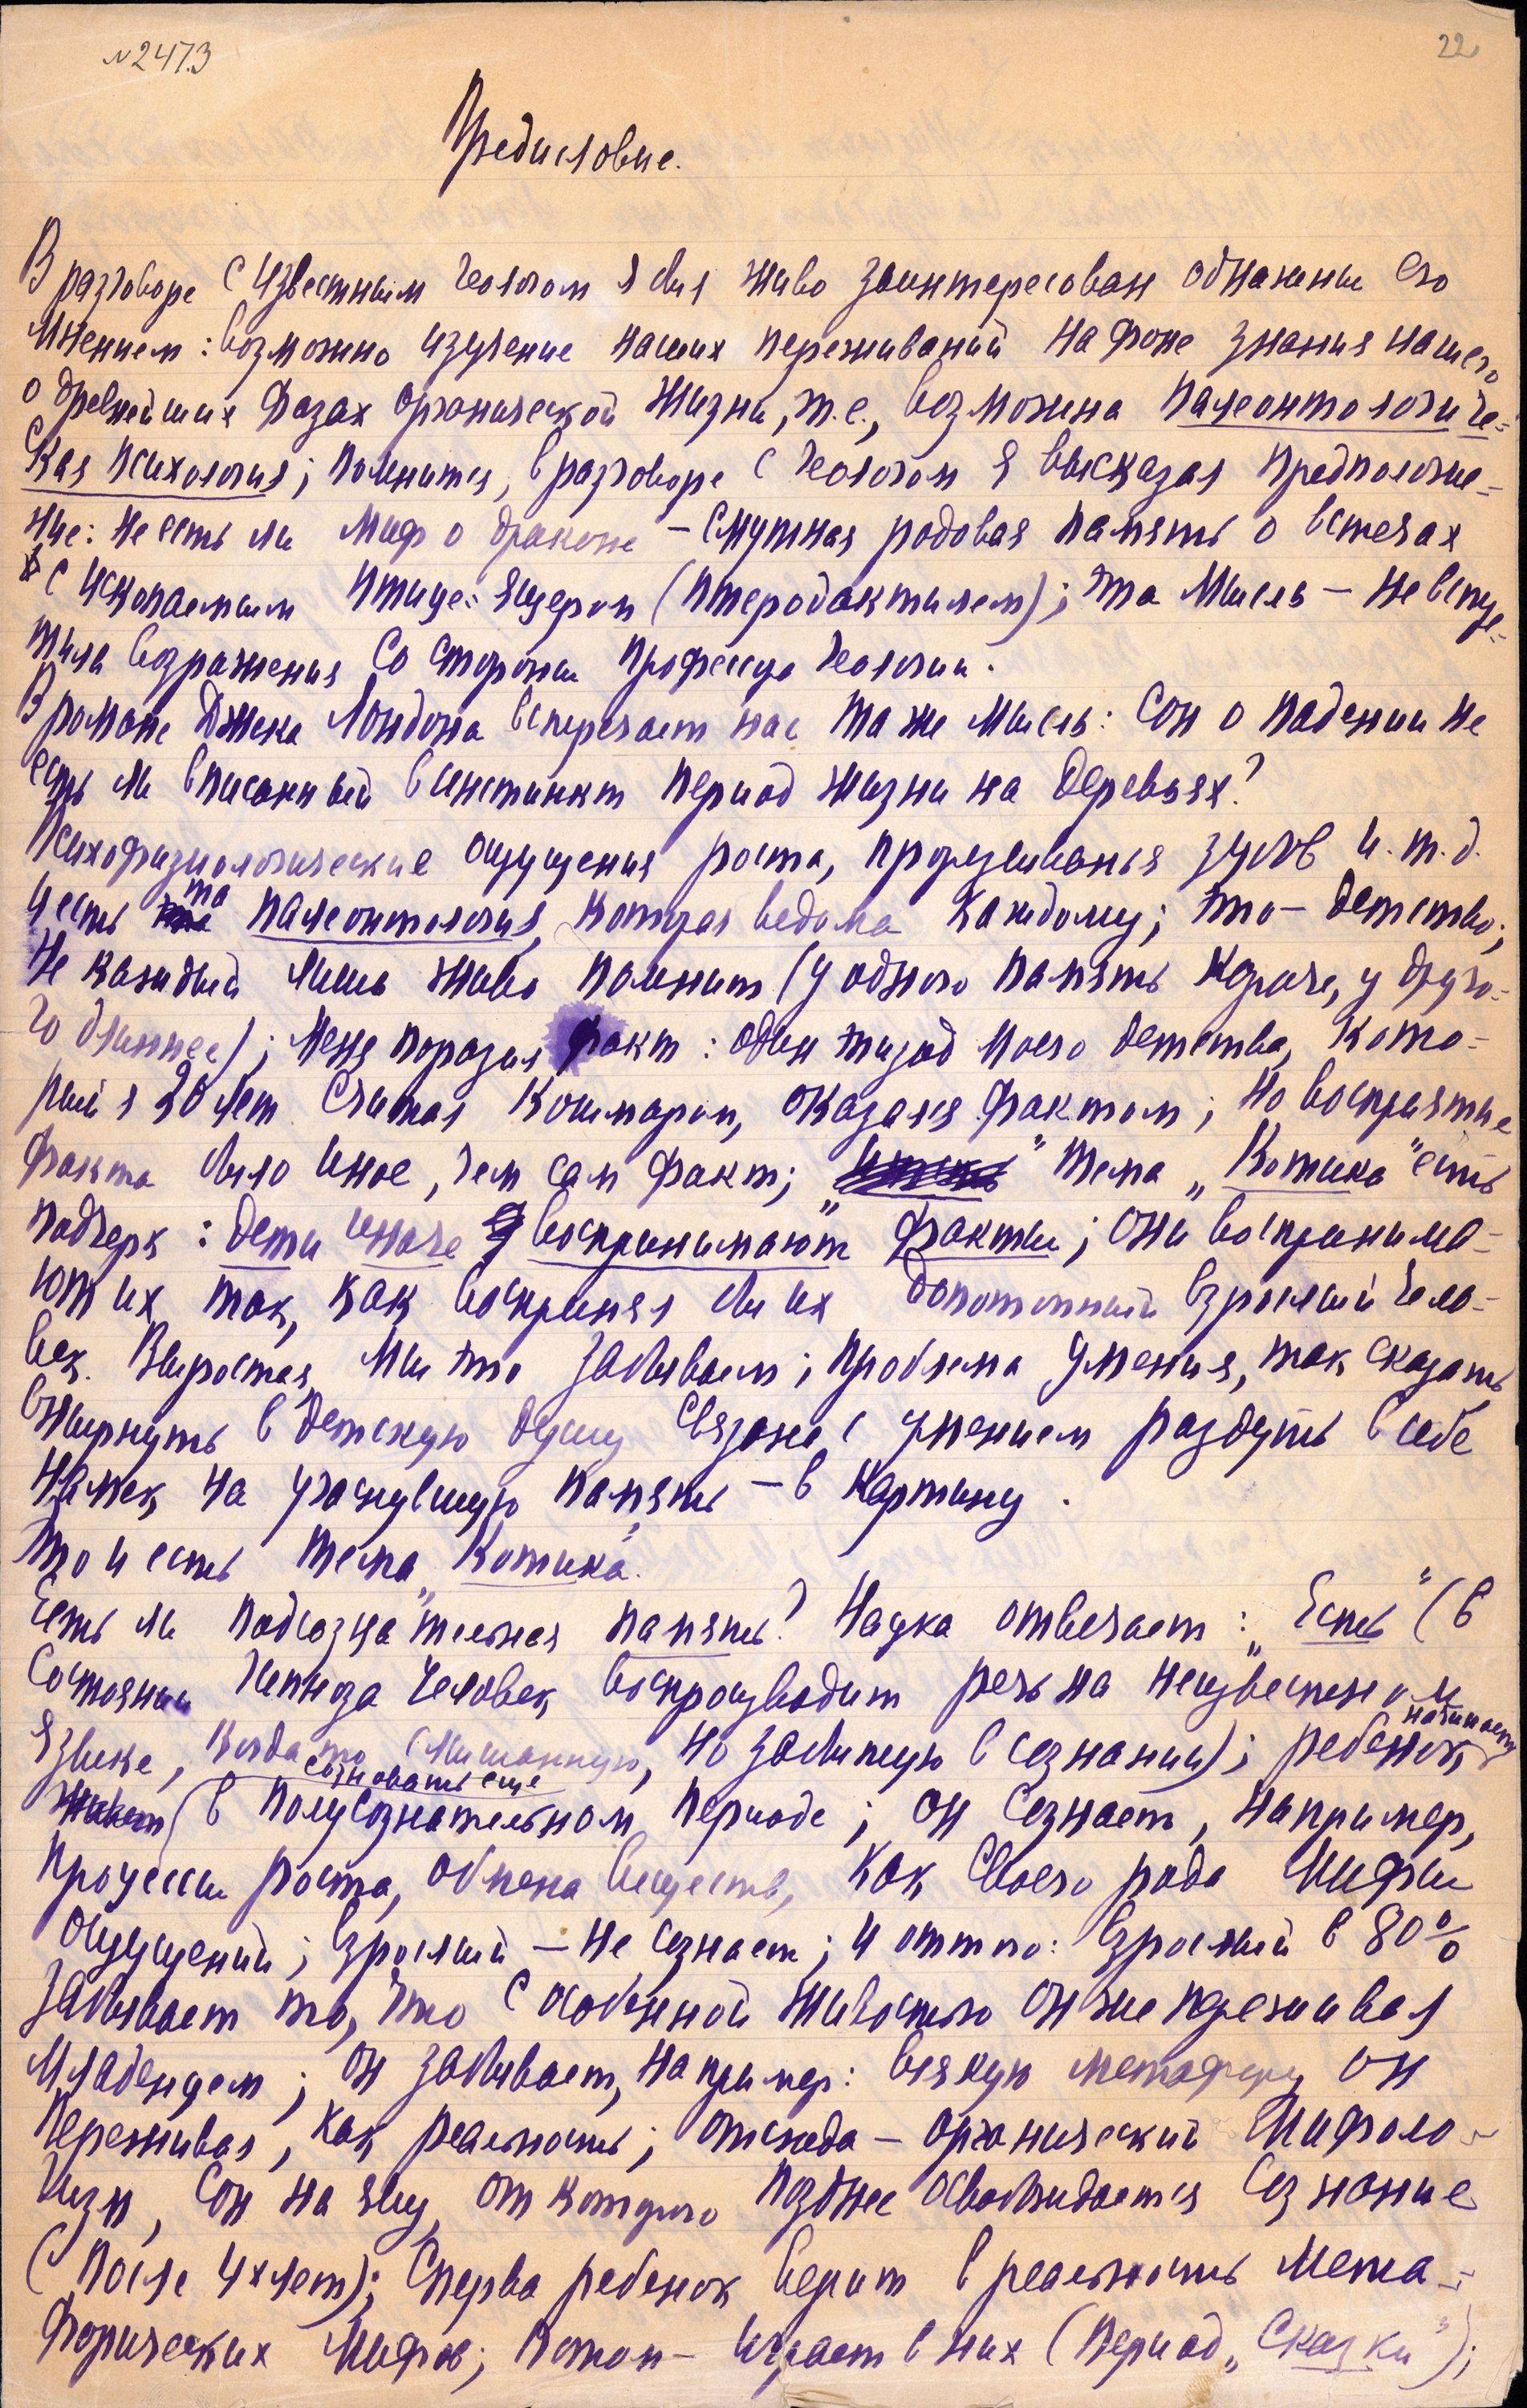 № 2473
22
Предисловие.
В разговоре с известным геологом я был живо заинтересован однажды его
мнением: возможно изучение наших переживаний на фоне знания нашего
о древнейших фазах органической жизни, т.е., возможна палеонтологиче-
ская психология; помнится, в разговоре с геологом я высказал предположе-
ние: не есть ли миф о драконе – смутная родовая память о встречах
с ископаемым птице-ящером (птеродактилем); эта мысль – не встре-
тила возражения со стороны профессора геологии.
В романе Джека Лондона встречает нас та же мысль: сон о падении не
есть ли вписанный в инстинкт период жизни на деревьях?
Психофизиологические ощущения роста, прорезыванья зубов и.т.д.
и есть та палеонтология, которая ведома каждому; это – детство;
не каждый лишь живо помнит (у одного память короче, у друго-
го длиннее); меня поразил факт: один эпизод моего детства, кото-
рый я 20 лет считал кошмаром, оказался фактом; но восприятие
факта было иное, чем сам факт; тема „Котика" есть
подчерк: дети иначе „воспринимают" факты; они воспринима-
ют их так, как воспринял бы их допотопный взрослый чело-
век. Вырастая, мы это забываем; проблема умения, так сказать
внырнуть в детскую душу связана с умением раздуть в себе
намек на угаснувшую память – в картину.
Это и есть тема „Котика".
Есть ли подсознательная память? Наука отвечает: „Есть" (в
состоянии гипноза человек воспроизводит речь на неизвестном
языке, когда-то слышанную, но забытую в сознании); ребенок начинает
сознавать еще в полусознательном периоде; он сознает, например,
процессы роста, обмена веществ, как своего рода мифы
ощущений; взрослый – не сознает; и оттого: взрослый в 80%
забывает то, что с особенной живостью он же переживал
младенцем; он забывает, например: всякую метафору он
переживал, как реальность; отсюда – органический мифоло-
гизм, сон на яву, от которого позднее освобождается сознание
(после 4х лет); сперва ребенок верит в реальность мета-
форических мифов; потом – играет в них (период „сказки");